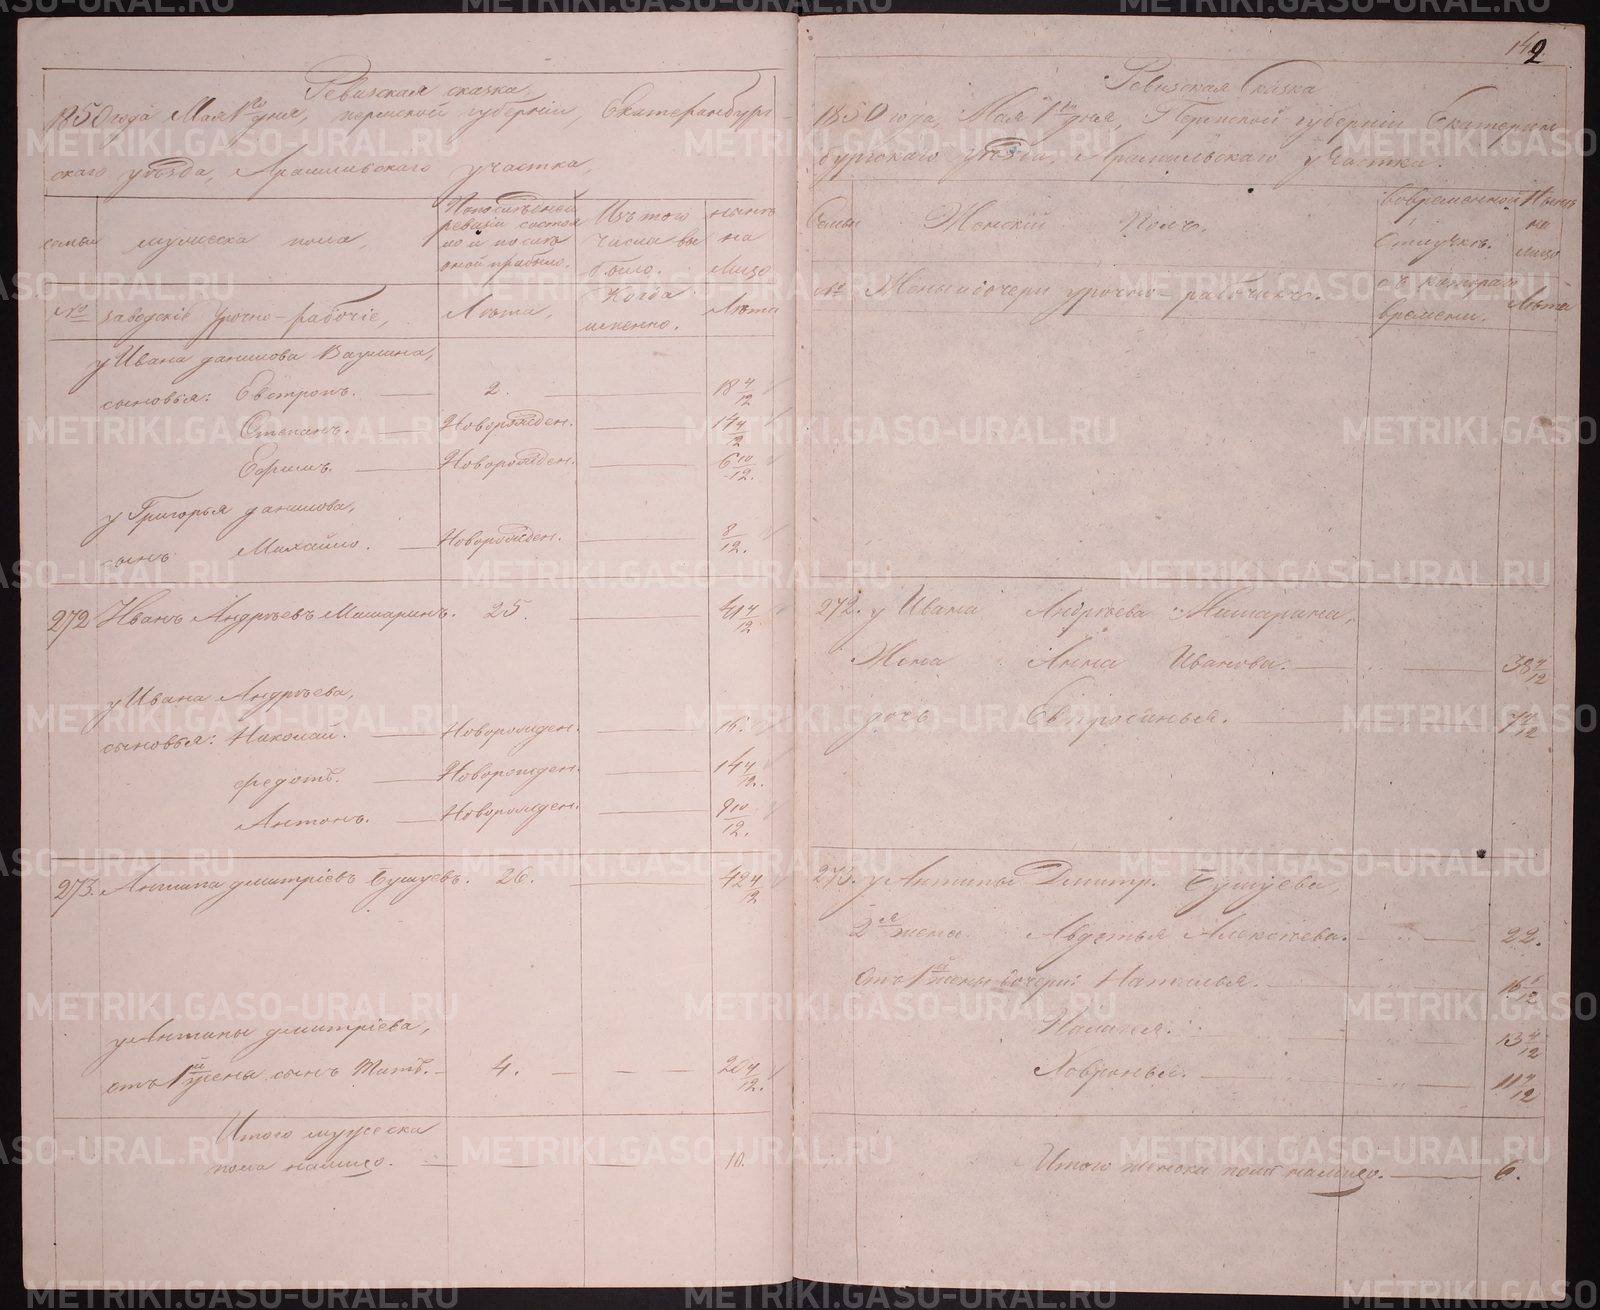 Ревизская сказка,
1850 года Мая 1го дня, пермской губернiи, Екатеринбург-
скаго уѣзда, Арамильскаго участка,
семьи
мужеска пола,
По последней ревизiи состояло и после оной прибыло.
Изъ того числа выбыло.
нынѣ на лицо
№
заводскiе Урочно-рабочiе,
Лѣта,
Когда именно.
Лѣта
у Ивана данилова
сыновья: Евстропъ. 2. 18 4/12
Степанъ. Новорожден. 14 4/12
Ефимъ. Новорожден. 6 10/12.
у Григорья данилова,
сынъ Михайло. Новорожден. 8/12.
272 Иванъ Андрѣевъ Мишаринъ. 25. 41 4/12
у Ивана Андрѣева,
сыновья: Николай. Новорожден. 16.
Федотъ. Новорожден. 14 4/12.
Антонъ. Новорожден. 9 10/12.
273. Антипа дмитрiевъ Сушуевъ. 26. 42 4/12
у Антипы дмитрiева,
отъ 1й жены сынъ Титъ. 4. 20 4/12.
Итого мужеска
пола налицо. 10.
142
Ревизская Сказка
1850 года, Мая 1го дня, Пермской губернiи Екатерин
бургскаго уѣзда, Арамильскаго участка.
Семьи
Женскiй Полъ.
Во временной отлучкѣ.
Нынѣ на лицо
№
Жены и дочери урочно-рабочихъ.
съ котораго времени.
Лѣта
272. у Ивана Андрѣева Мишарина,
Жена Анна Иванова. 38 4/12
дочь Евпросинья. 7 4/12
273. у Антипы Дмитр. Сушуева,
2я жена Авдотья Алексѣева. 22.
Отъ 1й жены дочери: Наталья. 16 6/12
Палагея. 13 4/12
Ховронья. 11 4/12
Итого женска пола налицо. 6.
METRIKI.GASO-URAL.RU